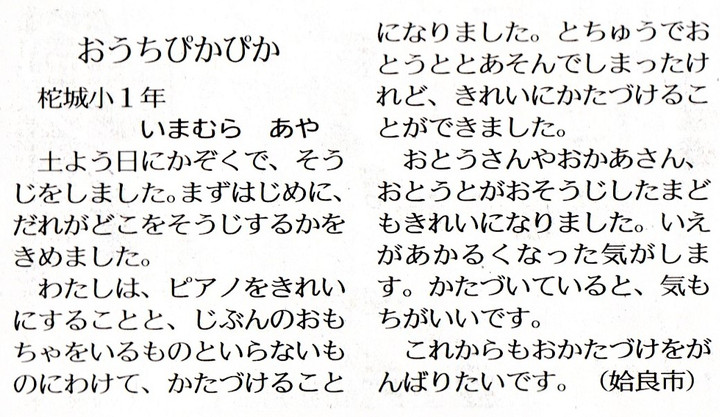 おうちぴかぴか
柁城小１年
いまむら　あや
　土よう日にかぞくで、そう
じをしました。まずはじめに、
だれがどこをそうじするかを
きめました。
　わたしは、ピアノをきれい
にすることと、じぶんのおも
ちゃをいるものといらないも
のにわけて、かたづけること
になりました。とちゅうでお
とうととあそんでしまったけ
れど、きれいにかたづけるこ
とができました。
　おとうさんやおかあさん、
おとうとがおそうじしたまど
もきれいになりました。いえ
があかるくなった気がしま
す。かたづいていると、気も
ちがいいです。
　これからもおかたづけをが
んばりたいです。（姶良市）